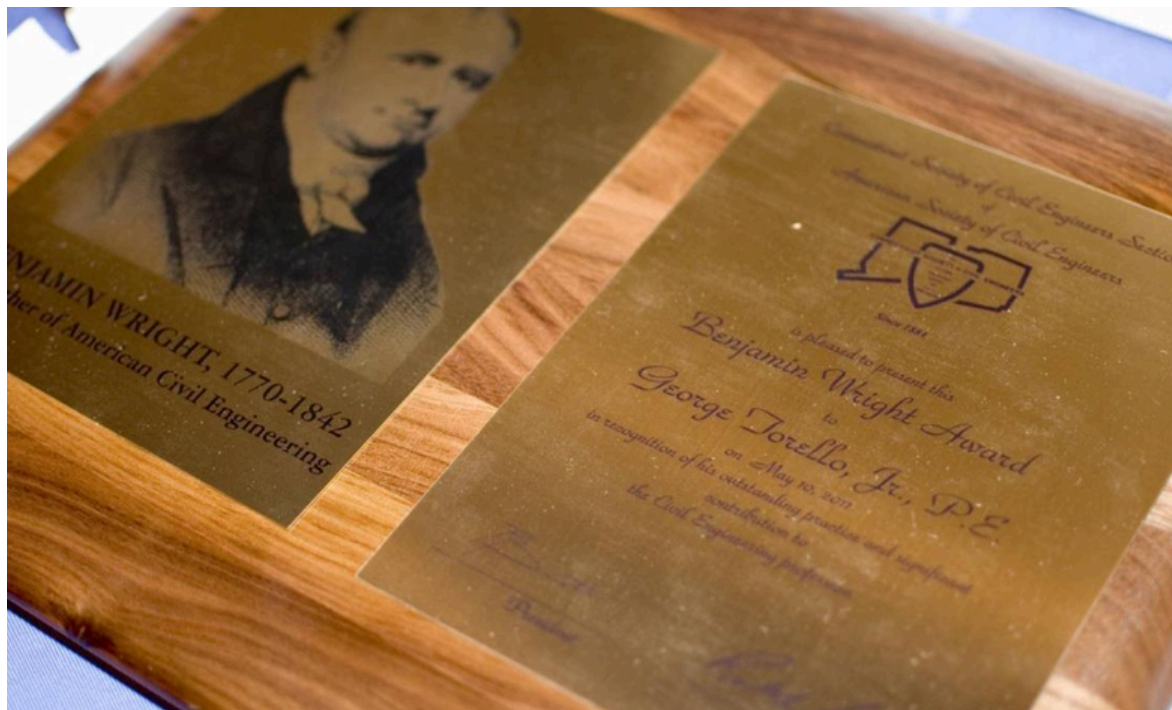 NJAMIN WRIGHT, 1770-1842
ther of American Civil Engineering
Society of Civil Engineers Section
of
American Society of Civil Engineers
Since 1881
is pleased to present this
Benjamin Wright Award
to
George Torello, Jr., P.E.
on May 10, 2011
in recognition of his outstanding practice and significant
contribution to
the Civil Engineering profession
President